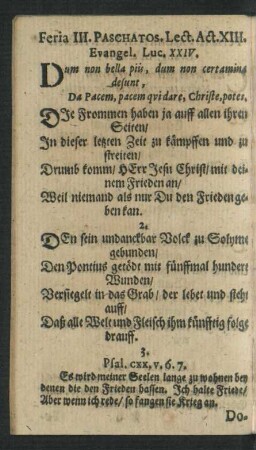 Feria III. PASCHATOS. Lect. Act. XIII.
Evangel. Luc. XXIV.
Dum non bella piis, dum non certamina
desunt,
Da Pacem, pacem qvi dare, Christe, potes.
DIe Frommen haben ja auff allen ihren
Seiten/
In dieser letzten Zeit zu kämpffen und zu
streiten/
Drumb komm/ HErr Jesu Christ/ mit dei-
nem Frieden an/
Weil niemand als nur Du den Frieden ge-
ben kan.
2.
DEn sein undanckbar Volck zu Solyme
gebunden/
Den Pontius getödt mit fünffmal hundert
Wunden/
Versiegelt in das Grab/ der lebet und steht
auff/
Daß alle Welt und Fleisch ihm künfftig folge
drauff.
3.
Psal. CXX, v. 6. 7.
Es wird meiner Seelen lange zu wohnen bey
denen die den Frieden hassen. Ich halte Friede/
Aber wenn ich rede/ so fangen sie Krieg an.
Do-